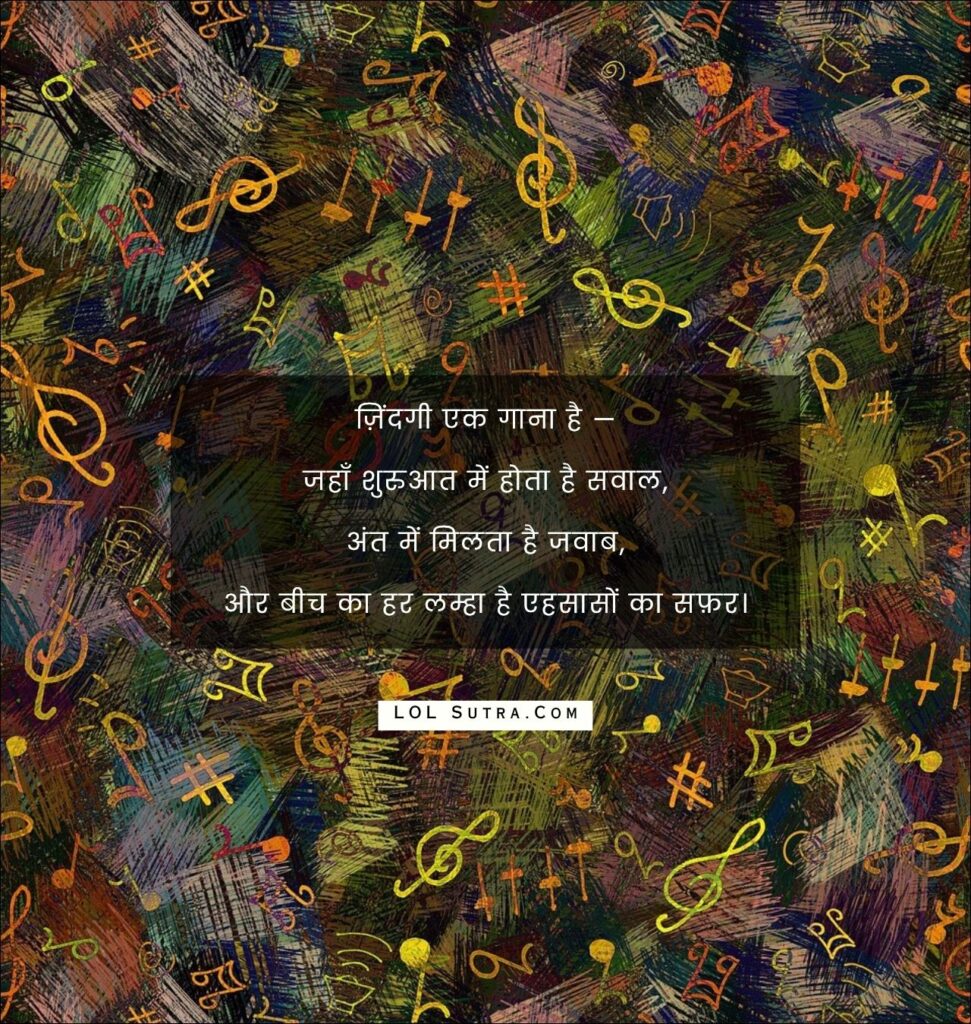 ज़िंदगी एक गाना है —
जहाँ शुरुआत में होता है सवाल,
अंत में मिलता है जवाब,
और बीच का हर लम्हा है एहसासों का सफ़र।
LOL SUTRA.COM